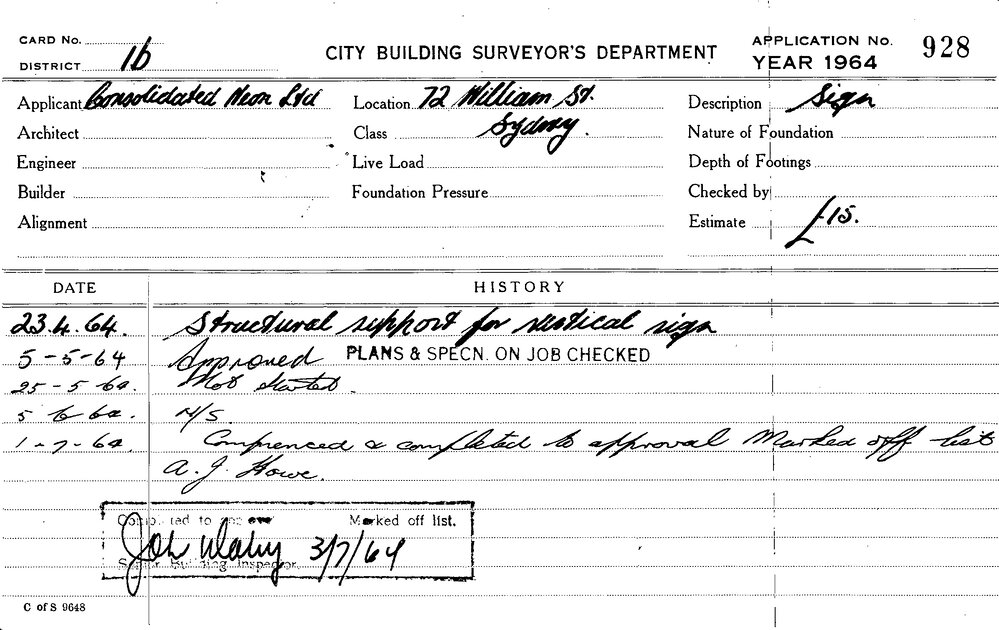 CARD No.
DISTRICT 1b
CITY BUILDING SURVEYOR'S DEPARTMENT
APPLICATION No. 928
YEAR 1964
Applicant Consolidated Neon Ltd
Location 72 William St. Sydney.
Description Sign
Architect
Class
Nature of Foundation
Engineer
Live Load
Depth of Footings
Builder
Foundation Pressure
Checked by
Alignment
Estimate £15.
DATE HISTORY
23.4.64. Structural support for vertical sign
5-5-64 Approved PLANS & SPECN. ON JOB CHECKED
25-5-64. Not started.
5 6 64. N/S
1-7-64 Commenced & completed to approval Marked off list
A. J. Howe.
Completed to Marked off list.
3/7/64
Senior Building Inspector.
C of S 9648